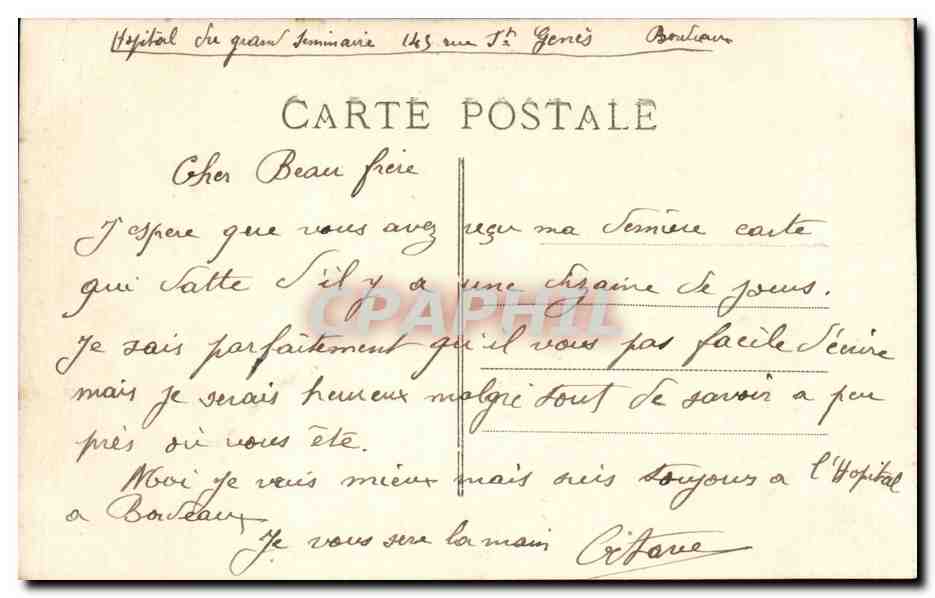 Hopital du grand Seminaire 145 rue St Genès Bordeaux
CARTE POSTALE
Cher Beau frère
J'espere que vous avez reçu ma dernière carte
qui datte d'il y a une dizaine de jours.
CPAPHIL
Je sais parfaitement qu'il vous pas facile d'écrire
mais je serais heureux malgré tout de savoir a peu
près où vous ète.
Moi je vais mieux mais suis toujours a l'Hopital
a Bordeaux
Je vous sere la main Octave